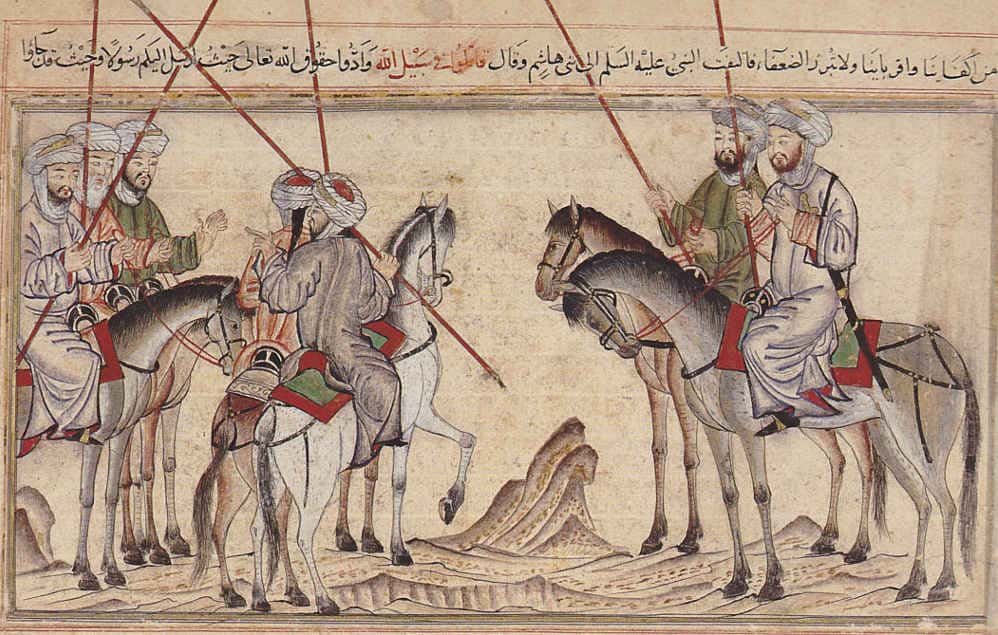 من اكفاينا واقرباينا ولا نبرز الضعفاء فالتفت النبى عليه السلم الى بنى هاشم وقال قاتلوا فى سبيل الله وادوا حقوق الله تعالى حيث ارسل اليكم رسولا وحيث قد جاؤا